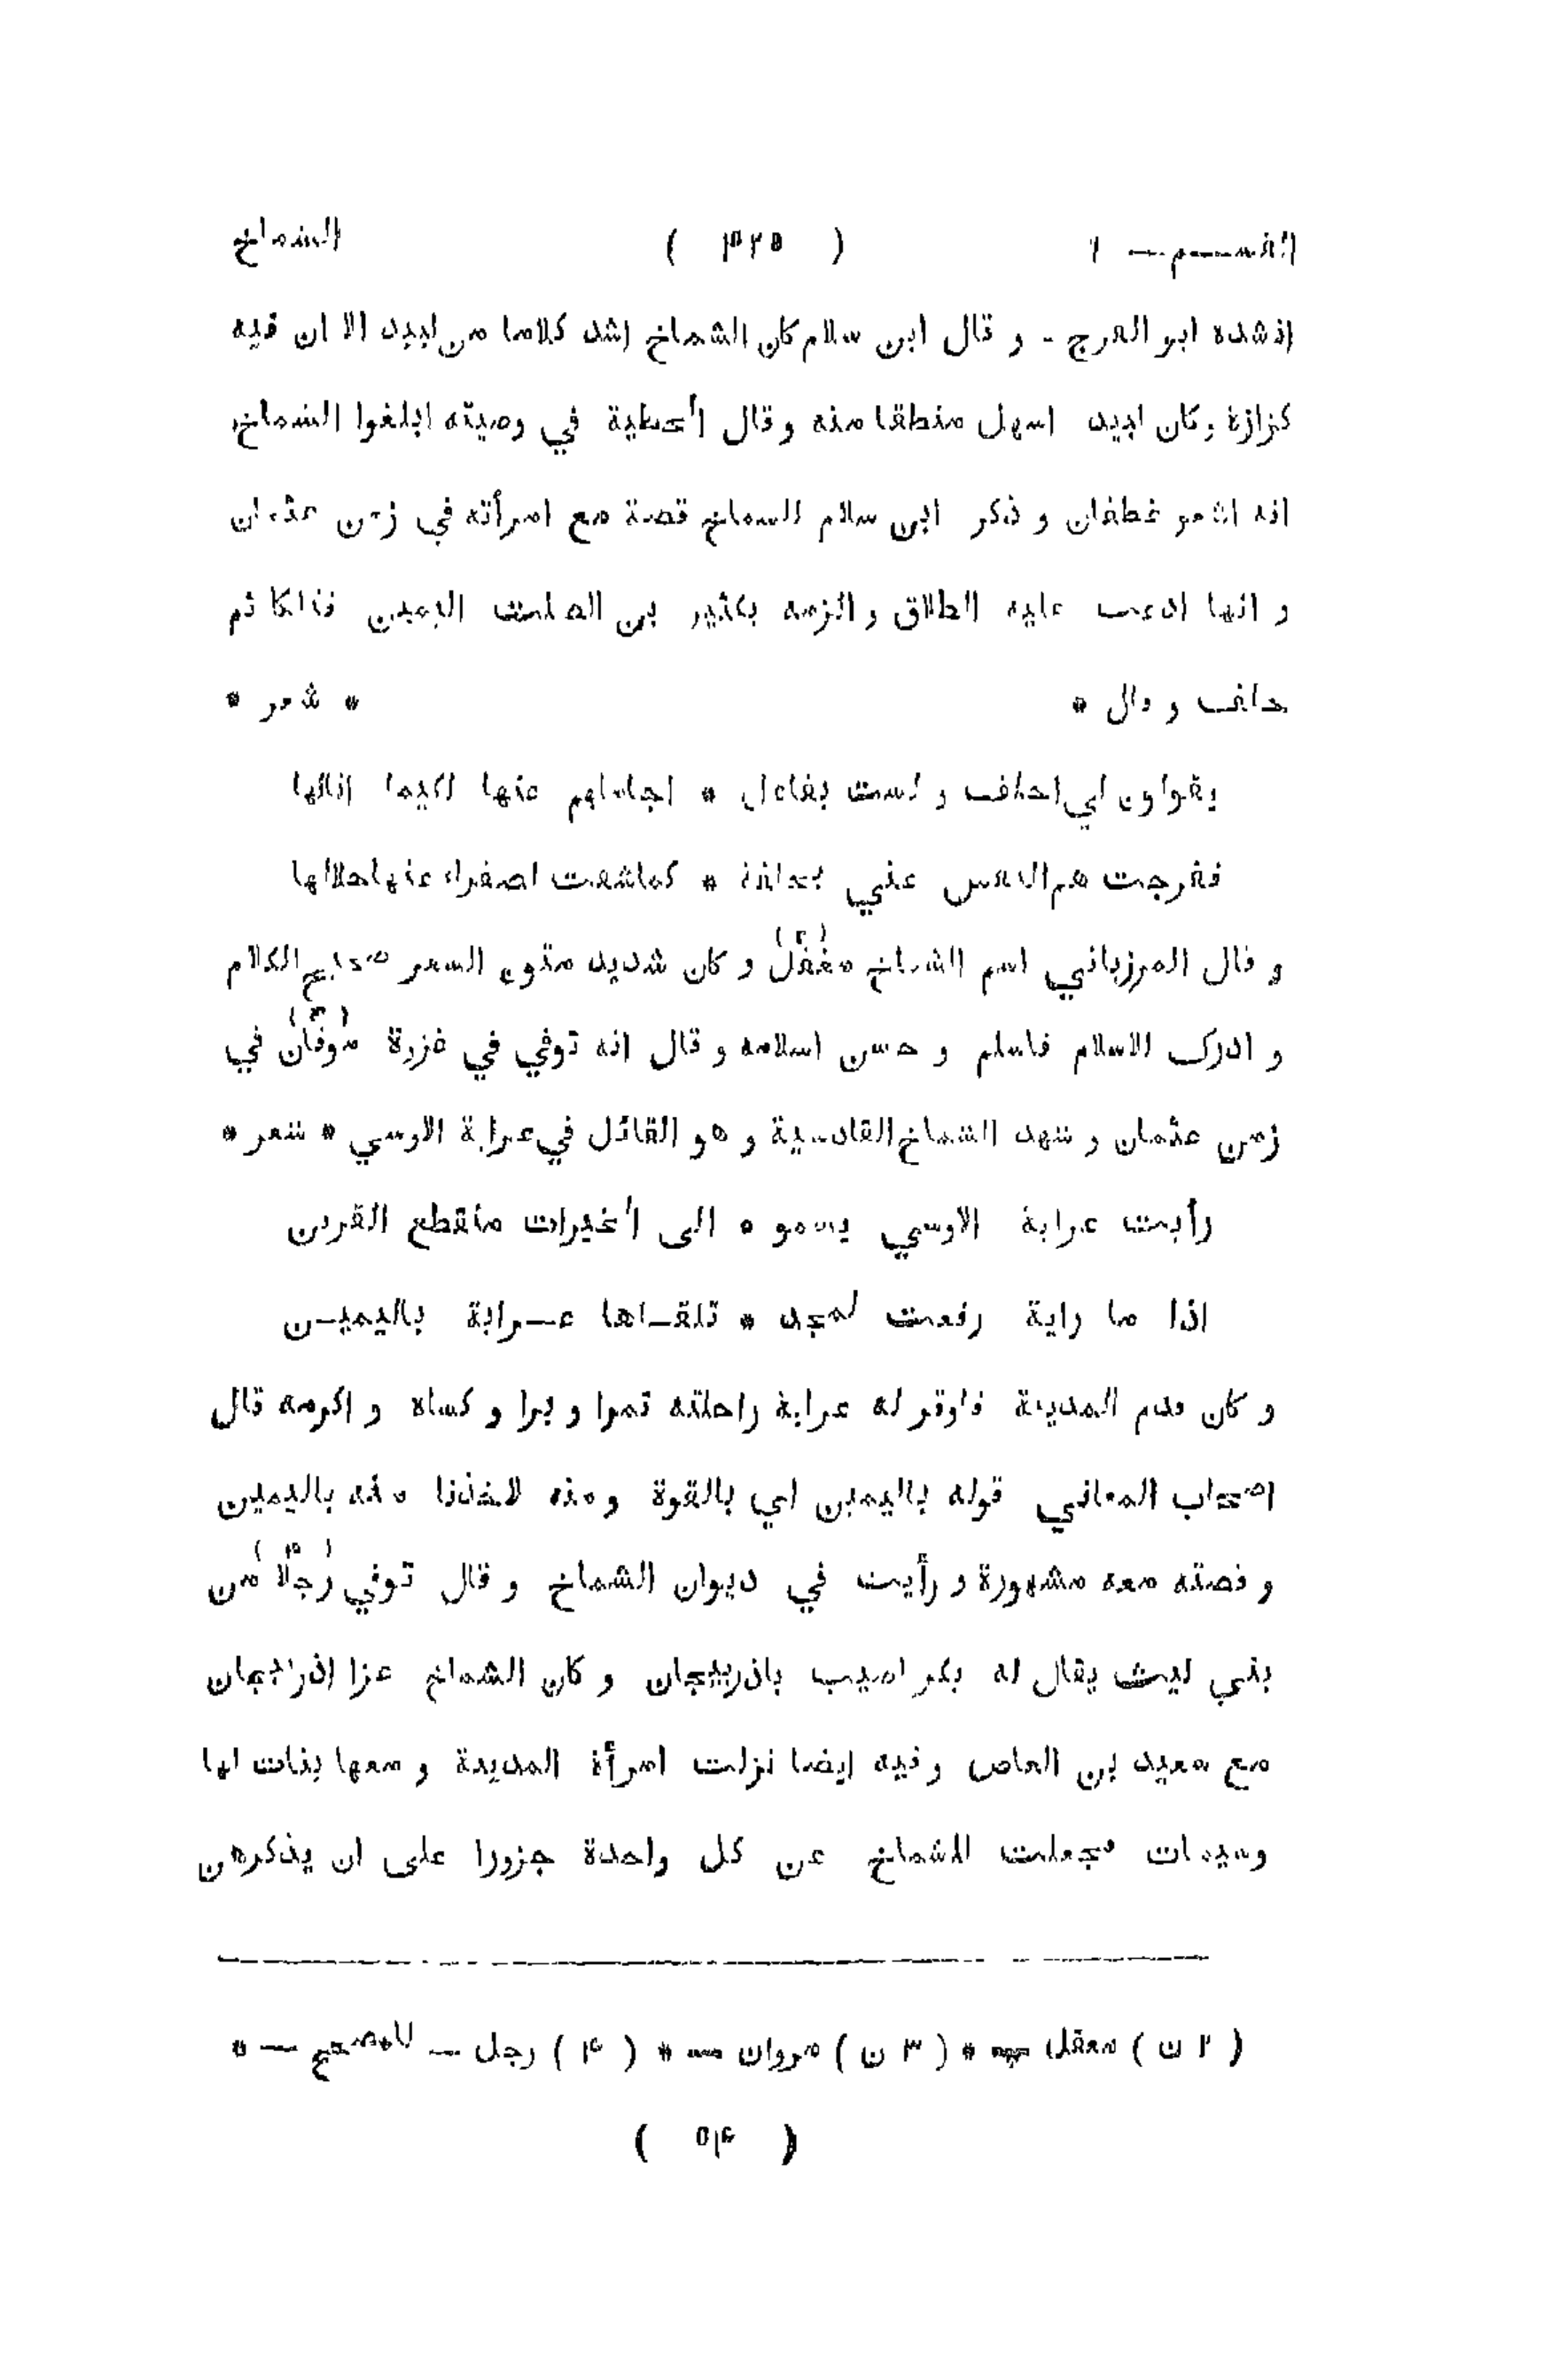 القسم — ٢ ( ٤٢٥ ) الشماخ
انشده ابو الفرج - و قال ابن سلام كان الشماخ اشد كلاما من لبيد الا ان فيه
كزازة و كان لبيد اسهل منطقا منه و قال الحطية في وصيته ابلغوا الشماخ
انه اشعر غطفان و ذكر ابن سلام للشماخ قصة مع امرأته في زمن عثمان
و انها ادعت عليه الطلاق و الزمه بكثير بن الصلت اليمين فتلكا ثم
حلف و قال * * شعر *
يقولون لي احلف و لست بفاعل * اخاتلهم عنها لكيما انالها
ففرجت هم النفس عني بحلفة * كما شقت الصفراء عنها جلالها
و قال المرزباني اسم الشماخ مغفل (٢) و كان شديد متون الشعر صحيح الكلام
و ادرك الاسلام فاسلم و حسن اسلامه و قال انه توفي في غزوة موقان (٣) في
زمن عثمان و شهد الشماخ القادسية و هو القائل في عرابة الاوسي * شعر *
رأيت عرابة الاوسي يسمو * الى الخيرات منقطع القرين
اذا ما راية رفعت لمجد * تلقاها عرابة باليمين
و كان قدم المدينة فاوقر له عرابة راحلته تمرا و برا و كساه و اكرمه قال
اصحاب المعاني قوله باليمين اي بالقوة و منه لاخذنا منه باليمين
و قصته معه مشهورة و رأيت في ديوان الشماخ و قال توفي رجلا (٤) من
بني ليث يقال له بكر اصيب باذربيجان و كان الشماخ غزا اذربيجان
مع سعيد بن العاص و فيه ايضا نزلت امرأة المدينة و معها بنات لها
وسيمات فجعلت للشماخ عن كل واحدة جزورا على ان يذكرهن
( ٢ ن ) معقل — * ( ٣ ن ) مروان — * ( ٤ ) رجل — للمصحح — *
( ٥٤ )